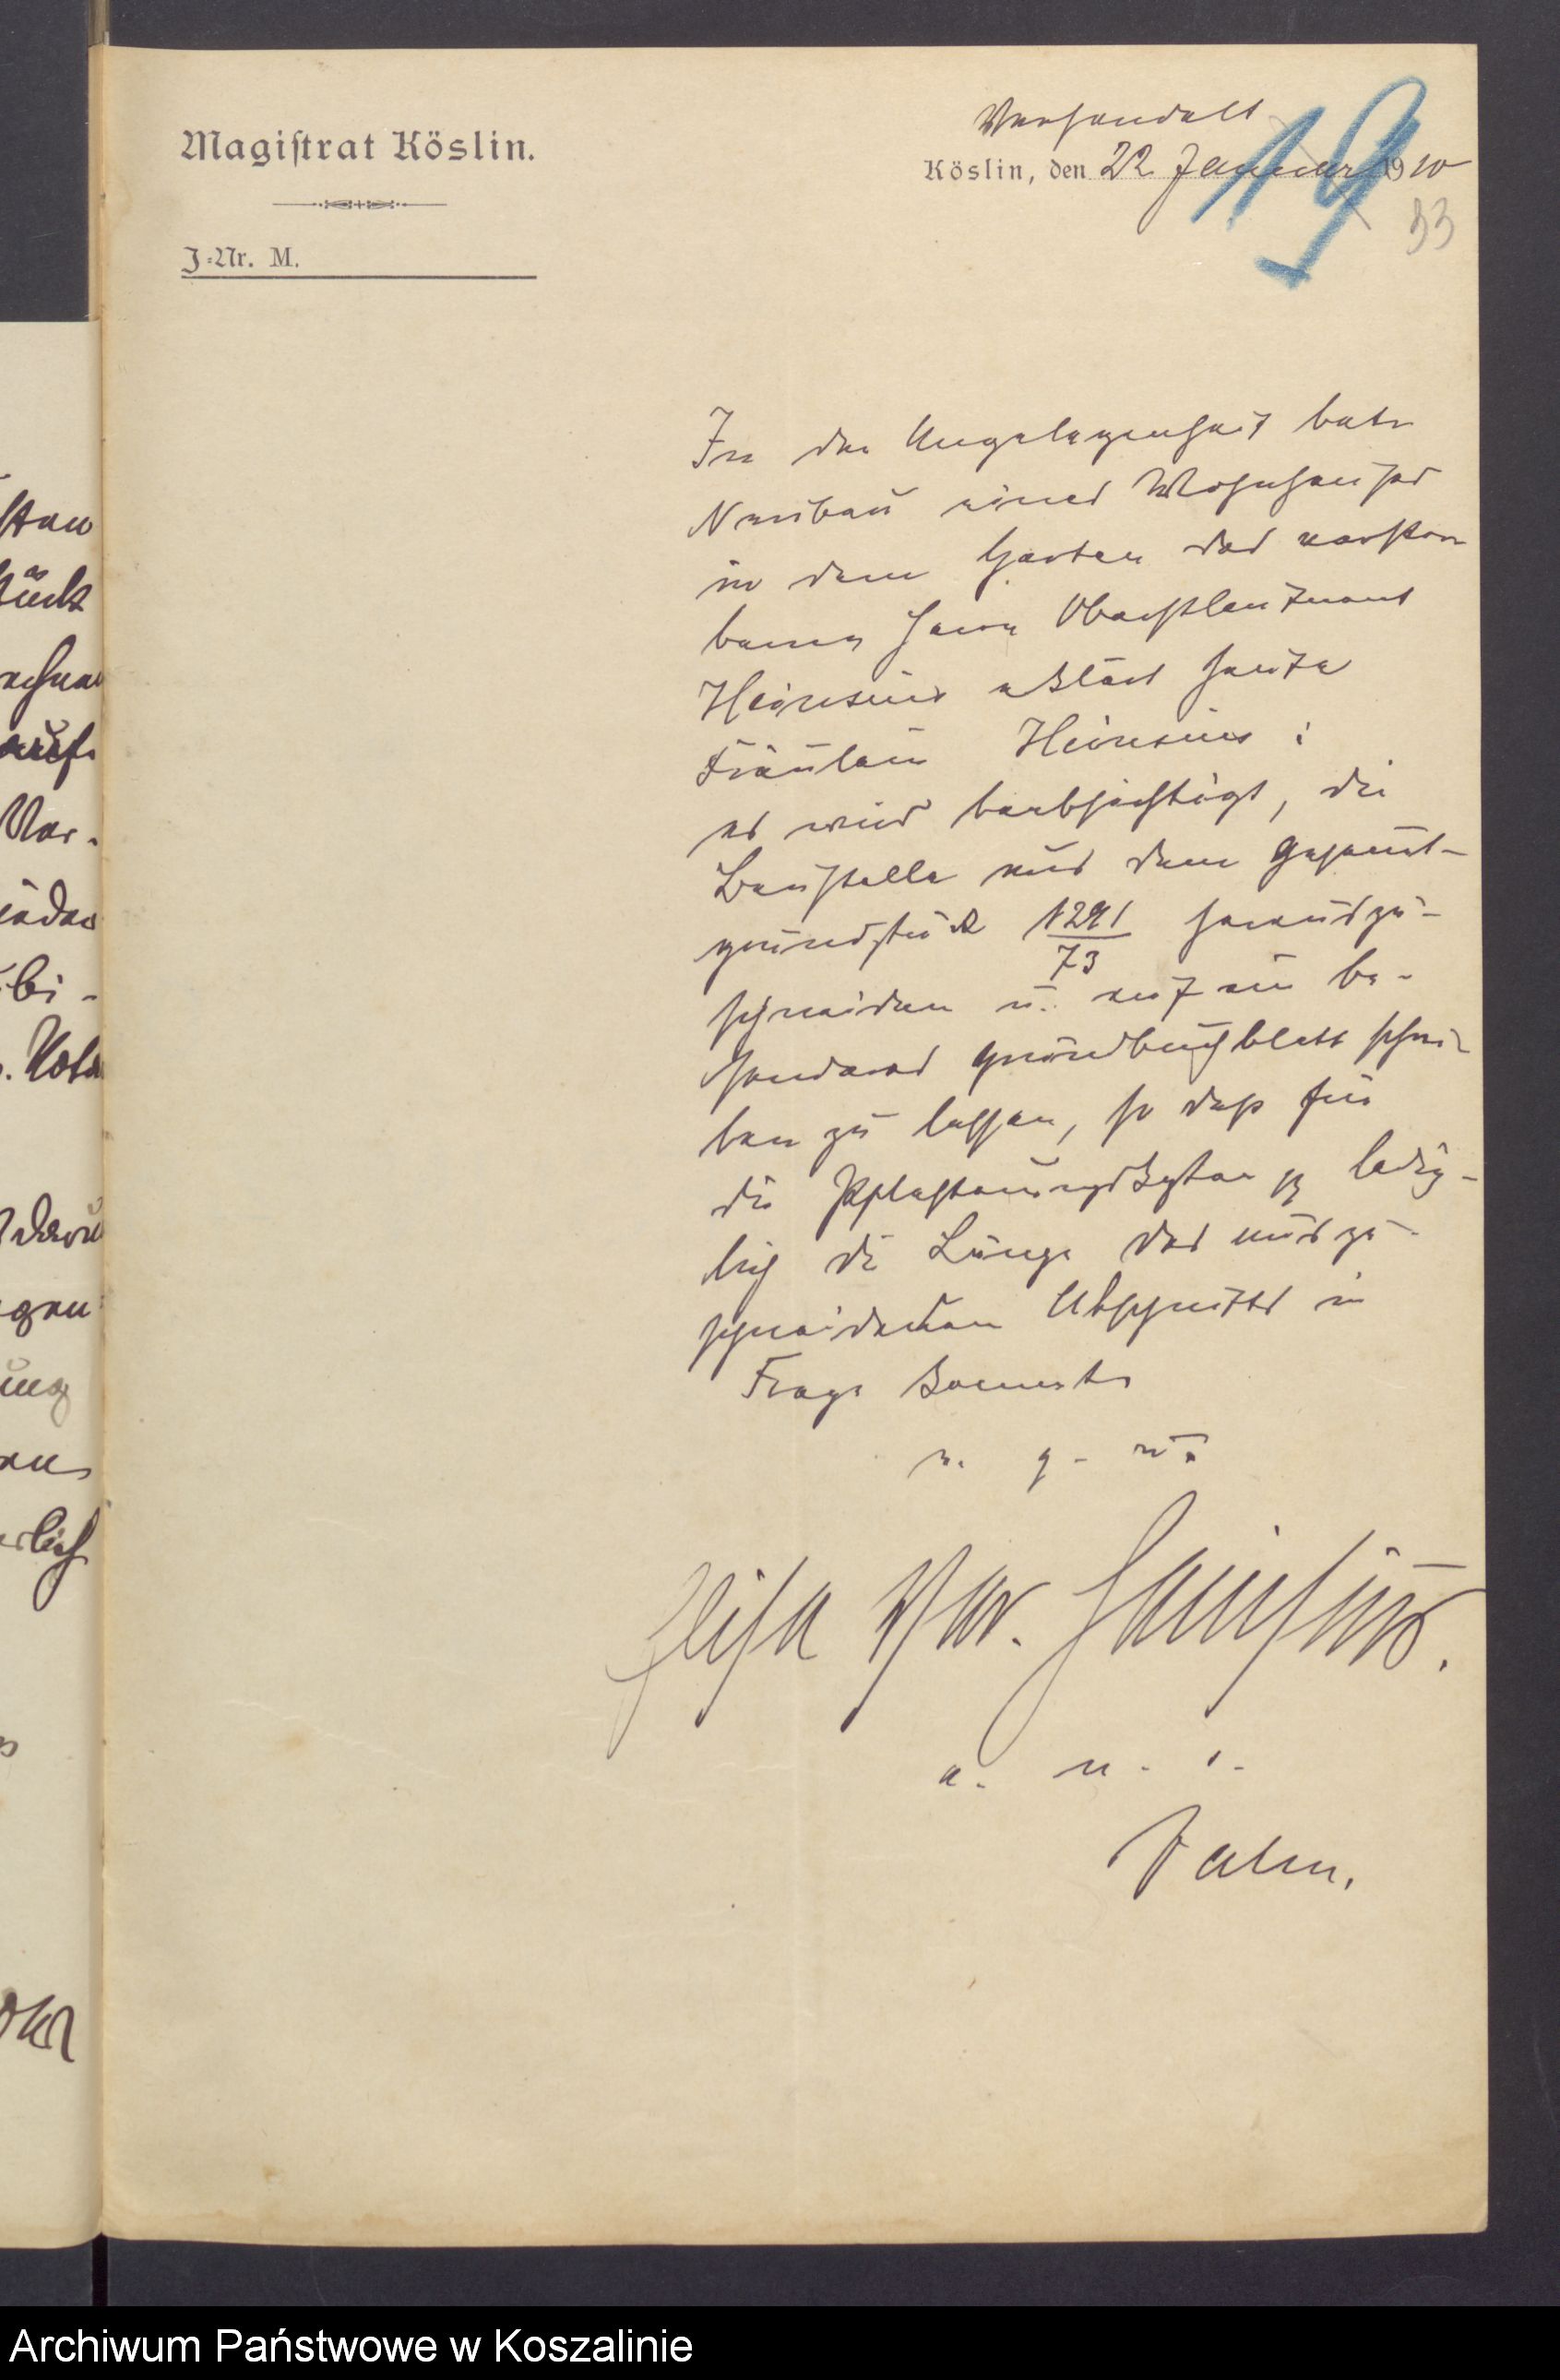 Magiſtrat Köslin.
J.-Nr. M.
Verhandelt
Köslin, den 22 Januar 1910
19
33
In der Angelegenheit betr.
Neubau eines Wohnhauses
in dem Garten des verstor
benen Herrn Oberstleutnant
Heinsius erklärt heute
Fräulein Heinsius:
es wird beabsichtigt, die
Baustelle aus dem Gesamt-
grundstück 1291/73 herauszu-
schneiden u. auf ein be-
sonderes Grundbuchblatt schrei-
ben zu lassen, so daß für
die Pflasterungskosten ledig-
lich die Länge des auszu-
schneidenden Abschnitts in
Frage kommt.
v. g. u.
Elisa Heinsius.
a. u. s.
ſtan
ück
auf
Ver-
bi-
gen
ung
en
rlich
Archiwum Państwowe w Koszalinie